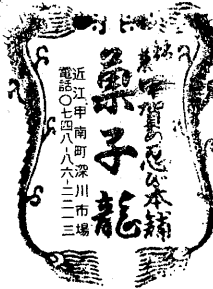 甲賀の忍び本舗
菓子龍
近江甲南町深川市場
電話〇七四八-八六-二二一三